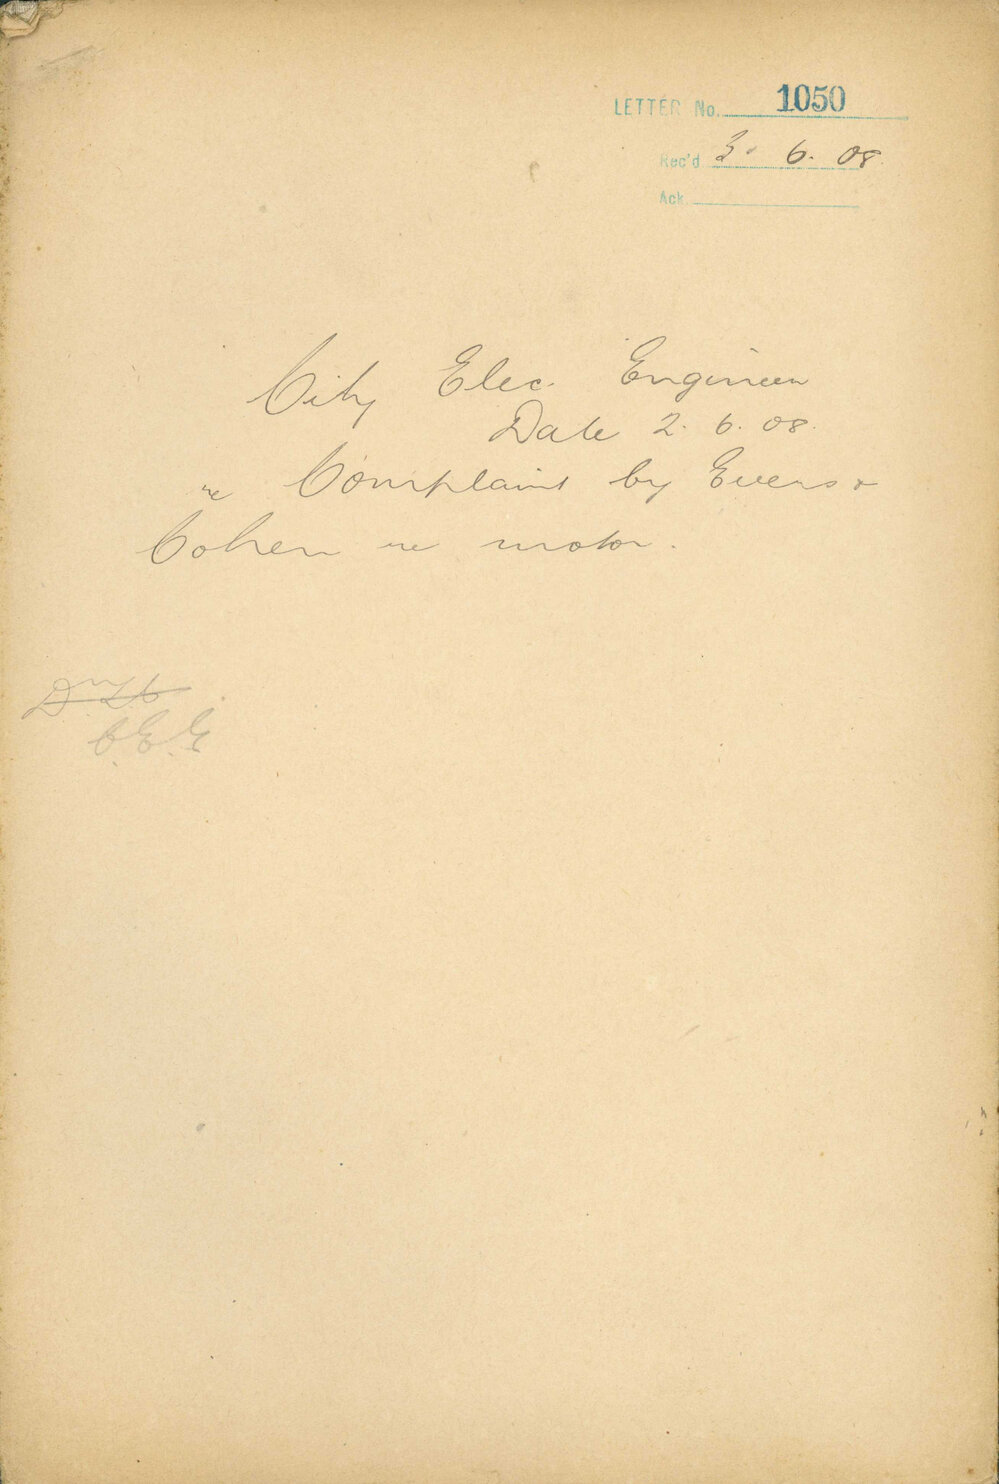 LETTER No. 1050
Rec'd 3. 6. 08
Ack.
City Elec. Engineer
Date 2. 6. 08.
re Complaint by Evers &
Cohen re motor.
C.E.E